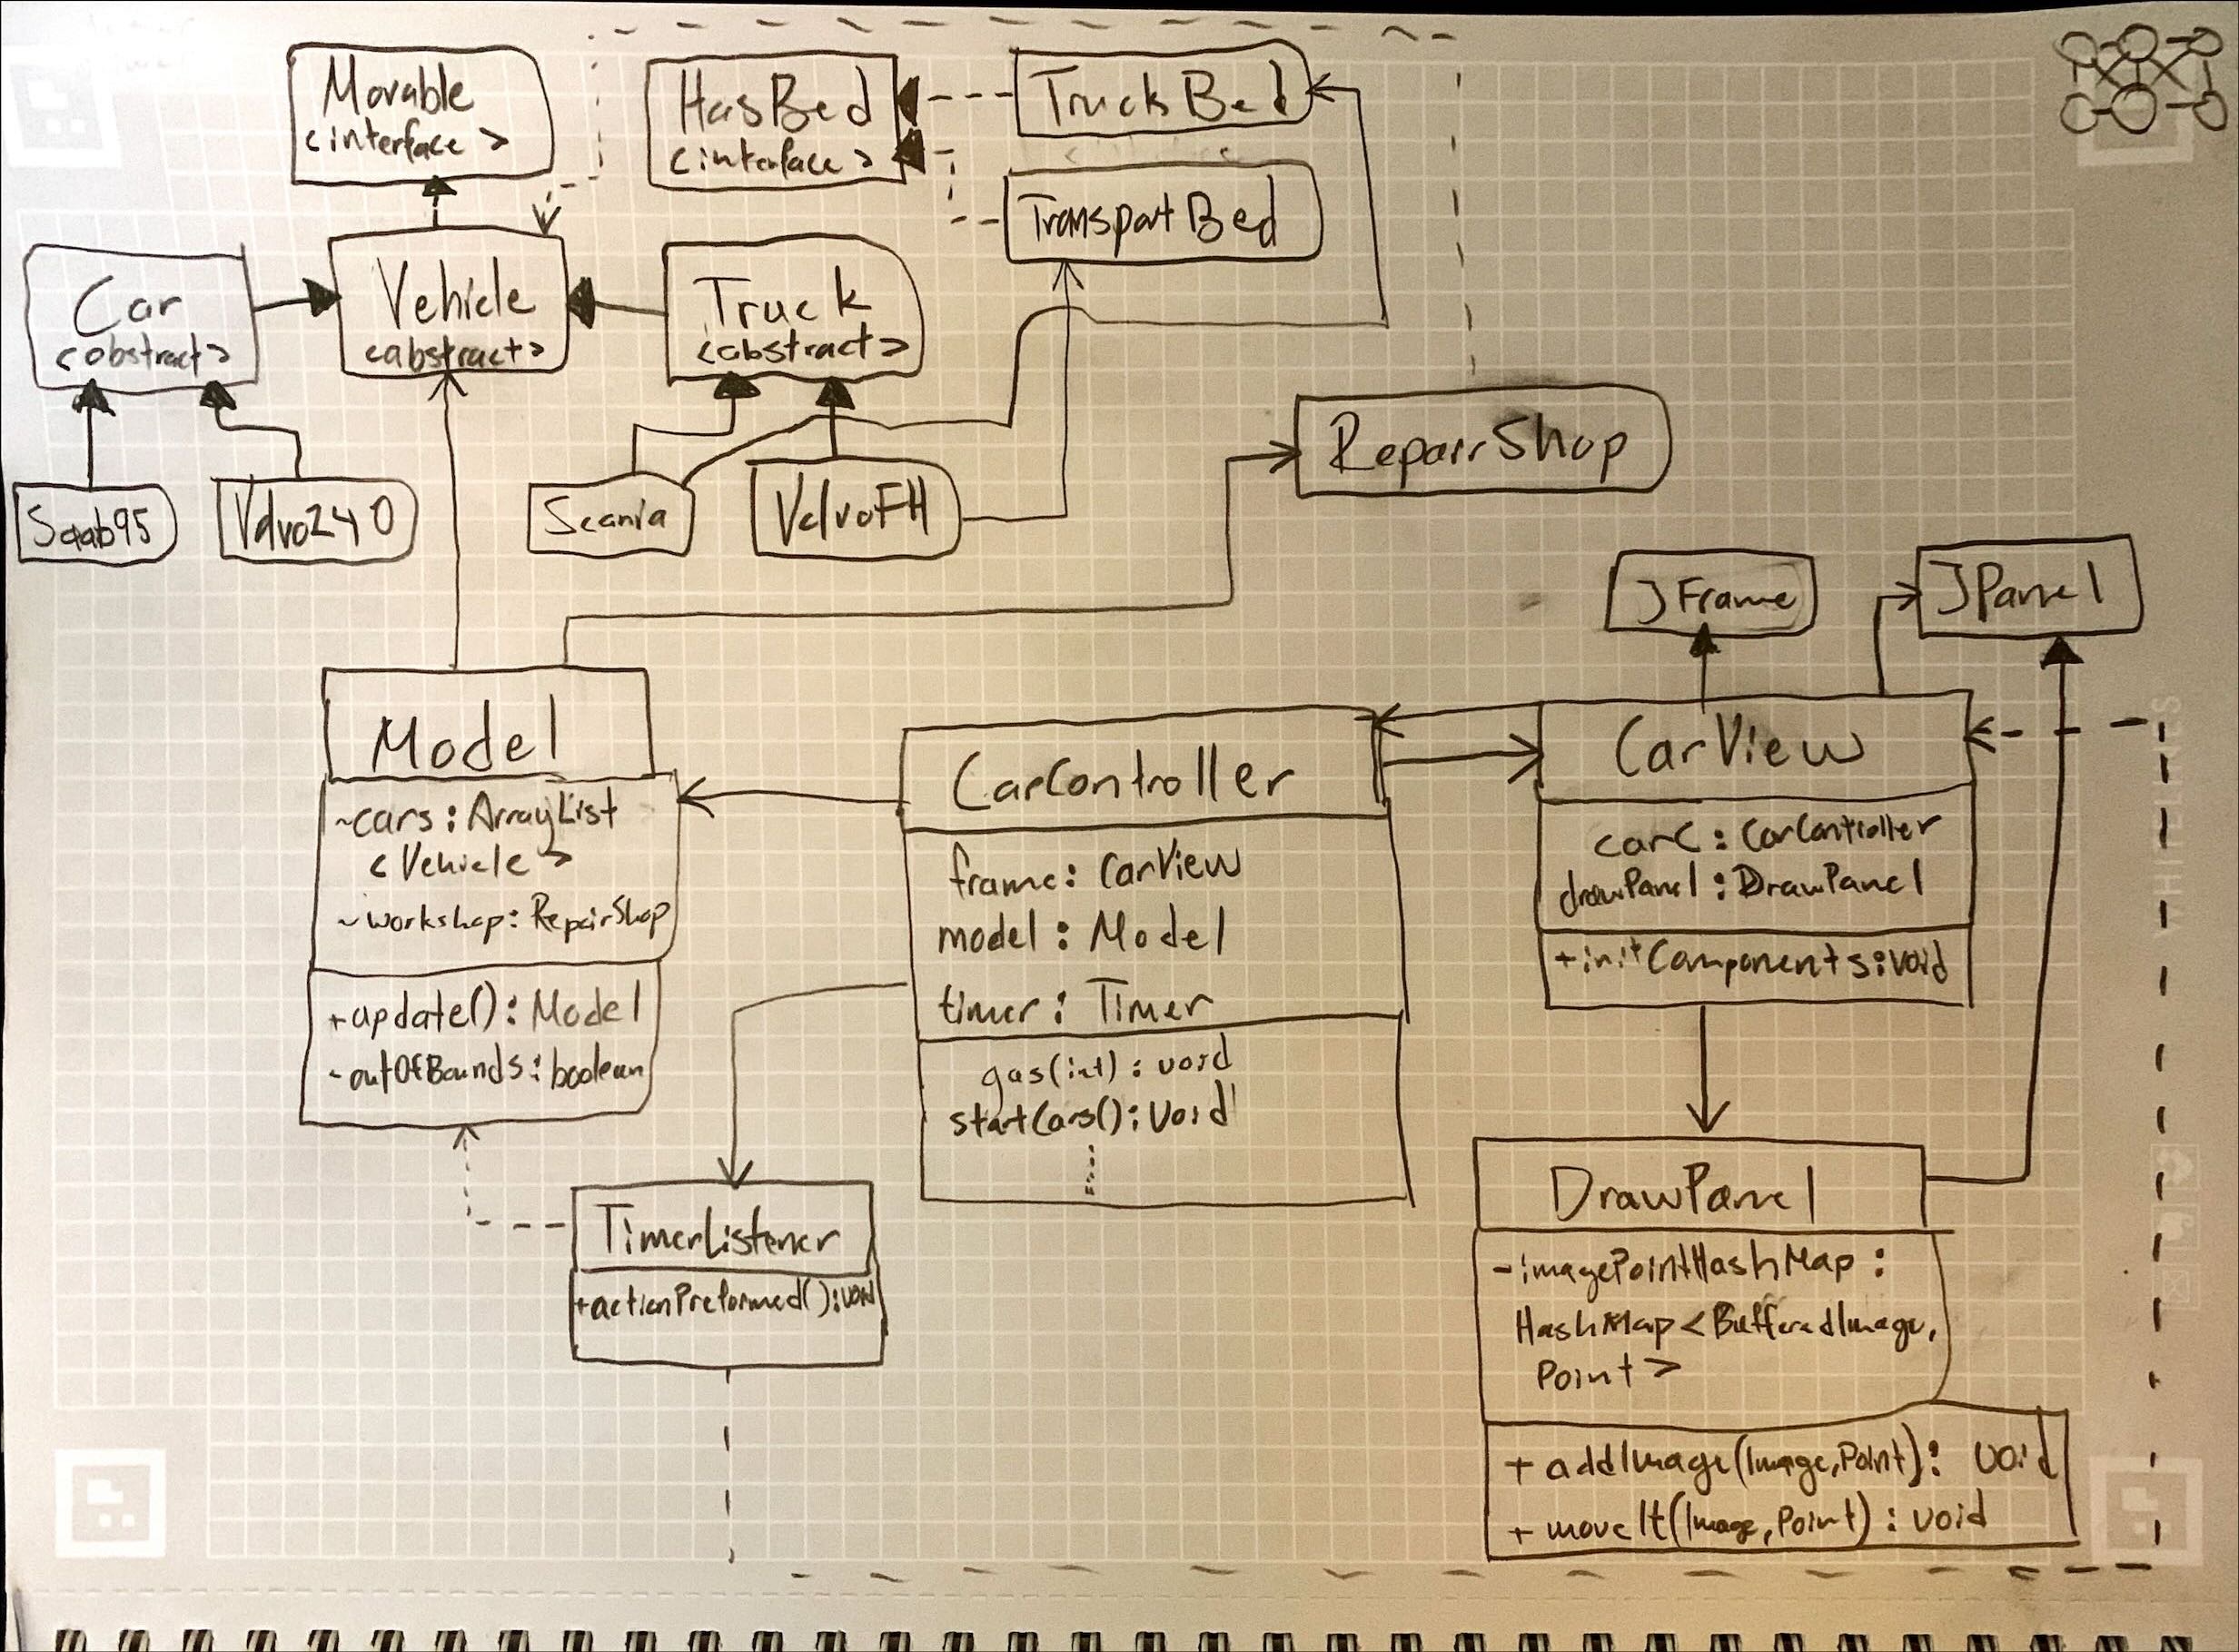 Movable
<interface>
HasBed
<interface>
TrucksBed
TransportBed
Car
<abstract>
Vehicle
<abstract>
Truck
<abstract>
RepairShop
Saab95
Volvo240
Scania
VolvoFH
JFrame
JPanel
Model
~cars: ArrayList
<Vehicle>
~workshop: RepairShop
+update(): Model
-outOfBounds: boolean
CarController
frame: CarView
model: Model
timer: Timer
gas(int): void
startCars(): void
CarView
carC: CarController
drawPanel: DrawPanel
+initComponents: void
TimerListener
+actionPreformed(): void
DrawPanel
-imagePointHashMap:
HashMap<BufferedImage,
Point>
+ addImage(Image,Point): void
+ moveIt(Image,Point): void